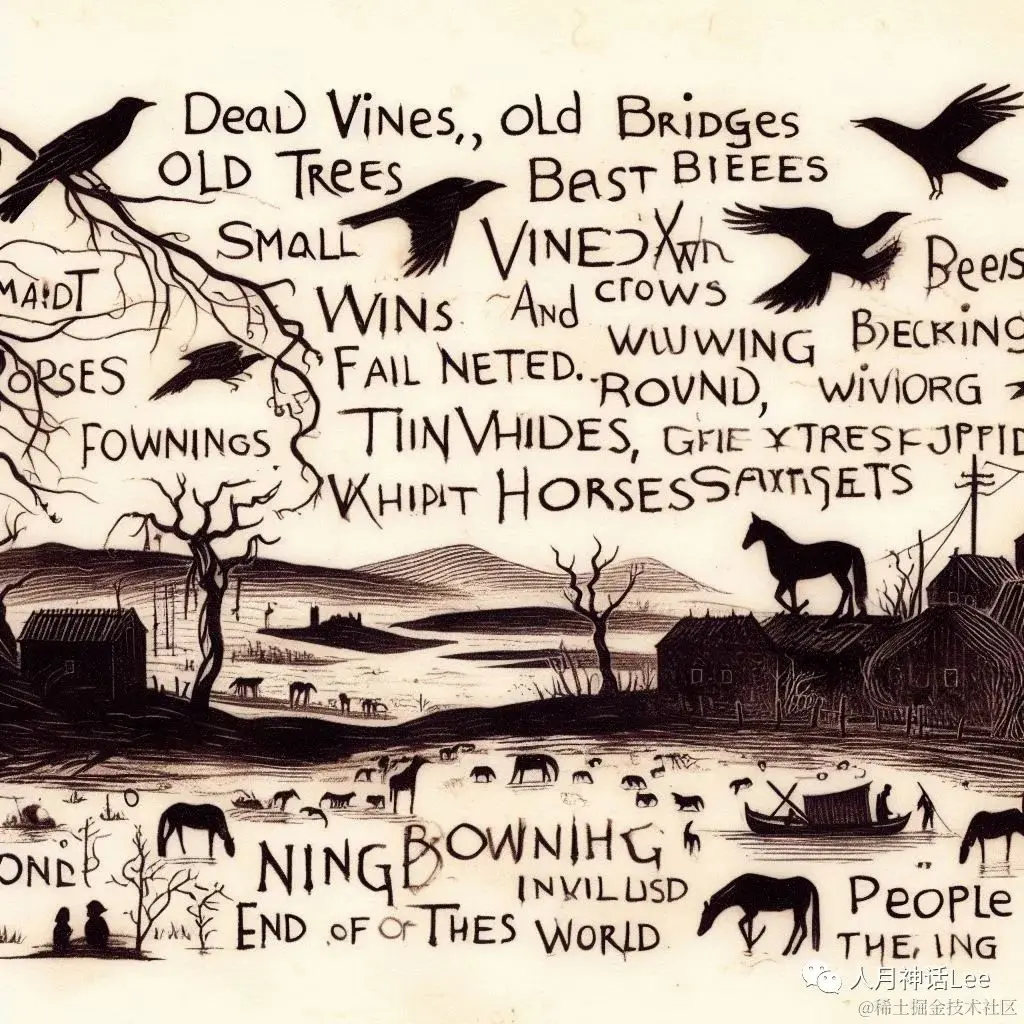 Dead Vines,, old Bridges
OLD TREES BEAST BIEEES
SMALL VINED
MAIDT Beeis
WINS And crows
WUUWING BECKING
ORSES FAIL NETED..
ROUND, WIVIORG
FOWNINGS TIINVHIDES, GFIE
HORSES
NING BOWNIHG
INVILUSD
END OF OF THES WORLD
PEOPLE
THE, ING
人月神话Lee
@稀土掘金技术社区